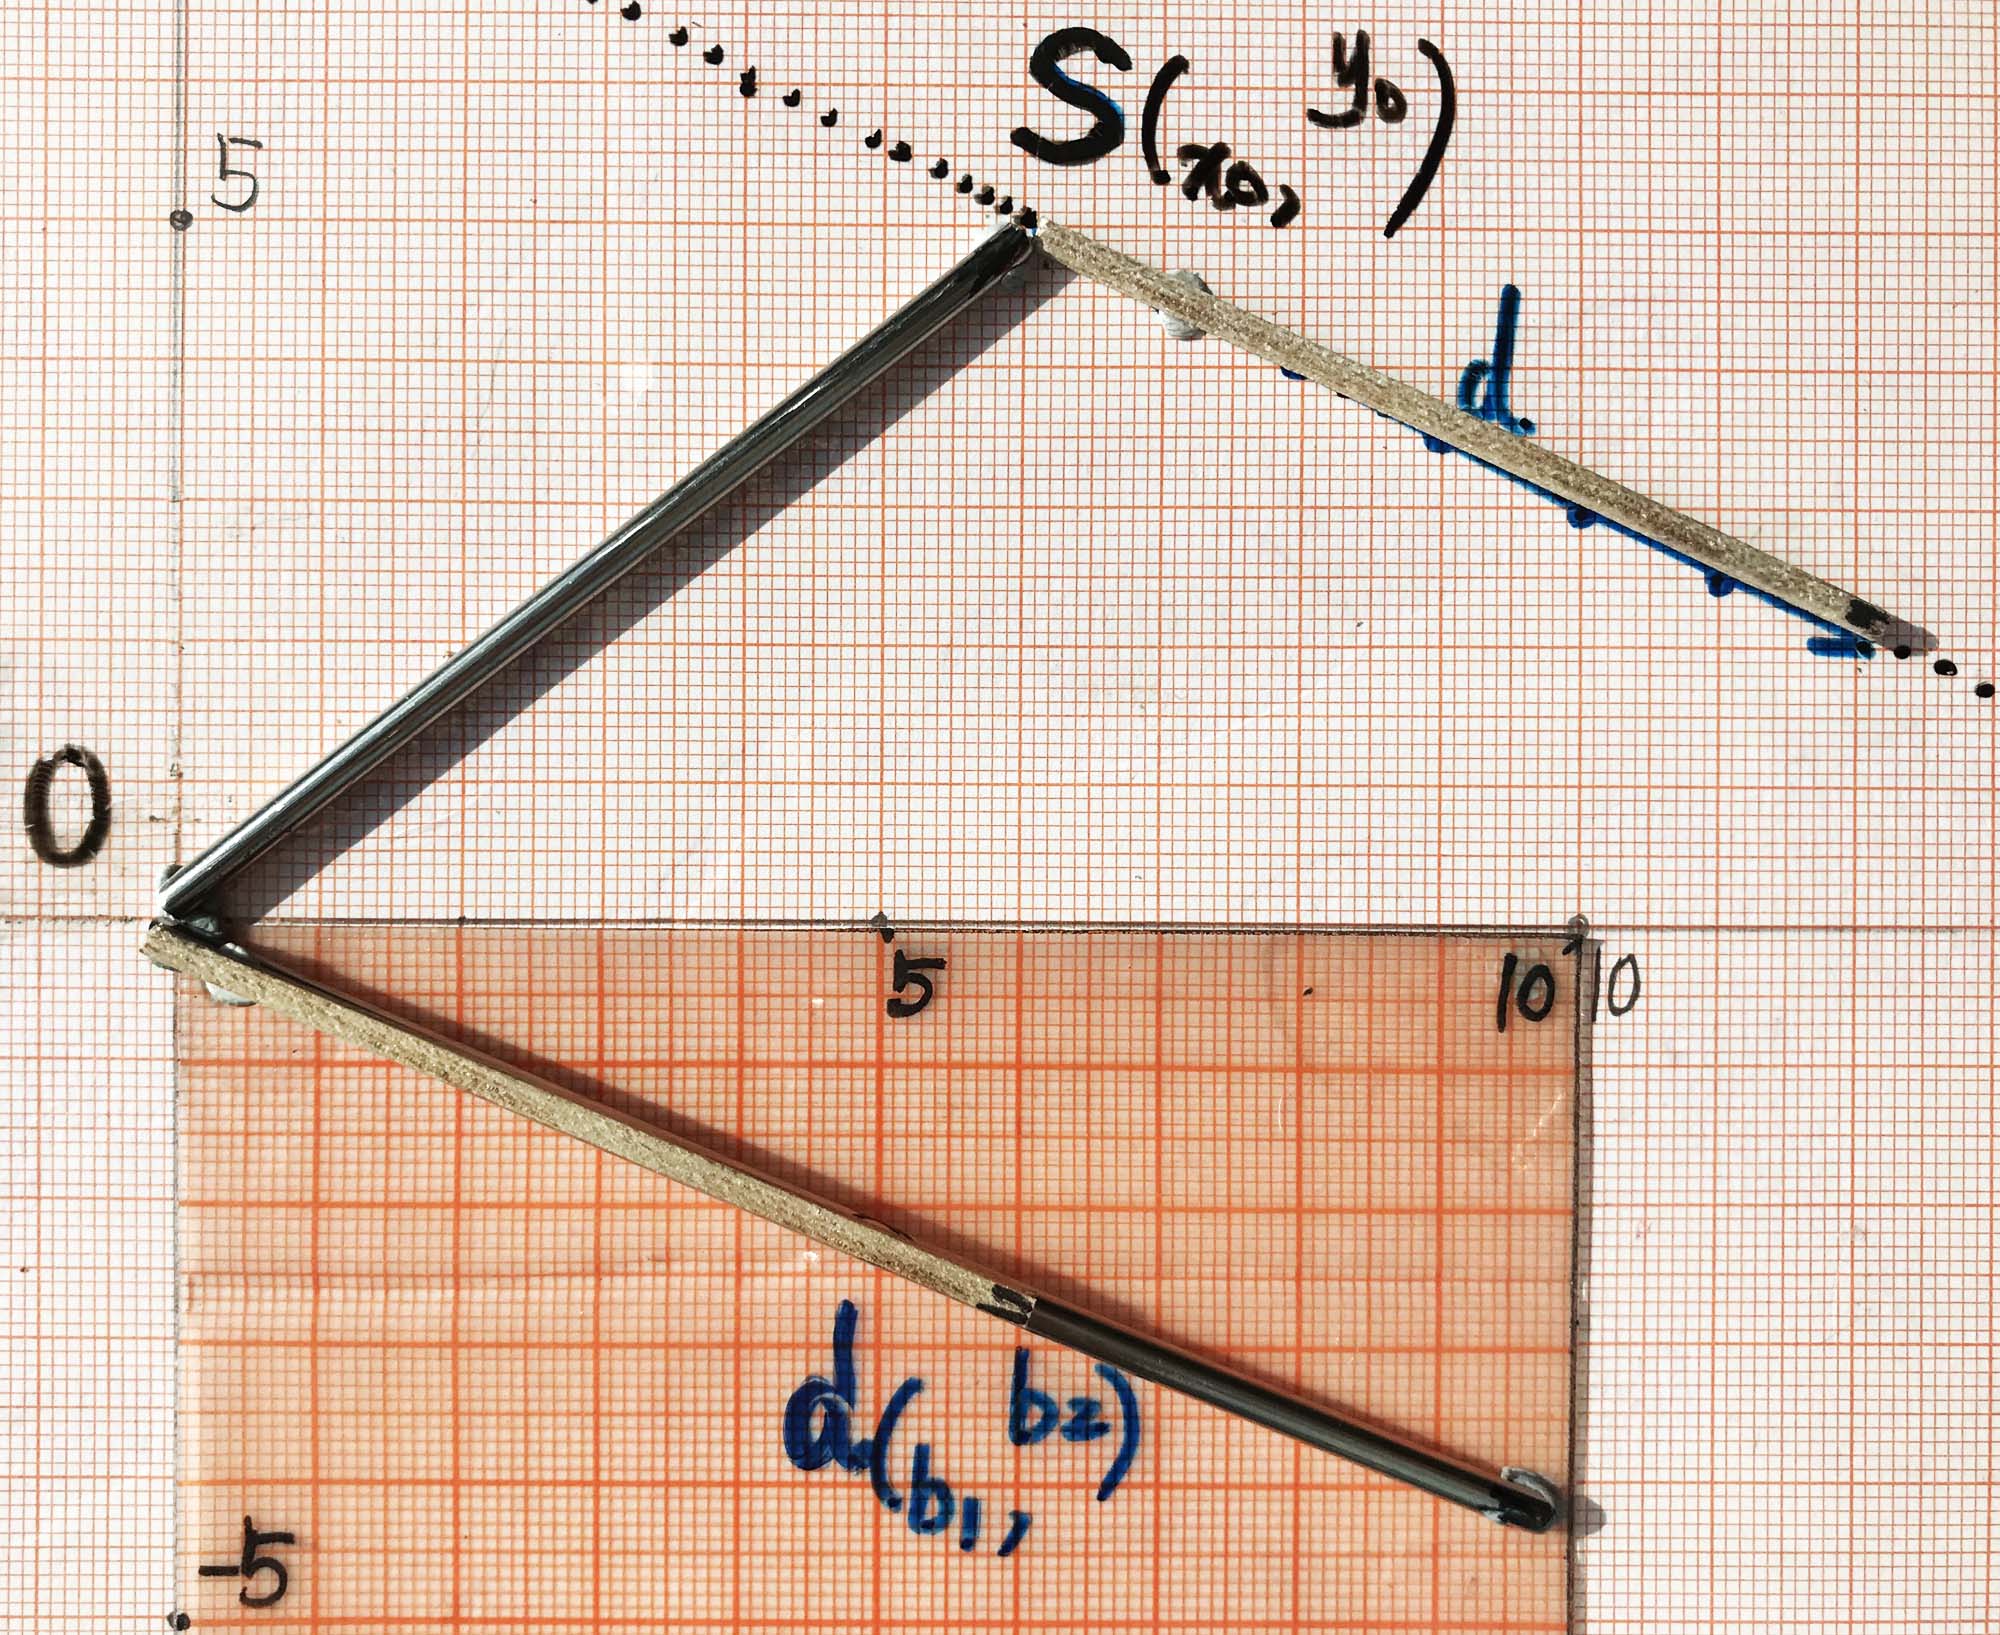 5
S(x₀, y₀)
d
0
5
10
10
d(b₁, b₂)
-5